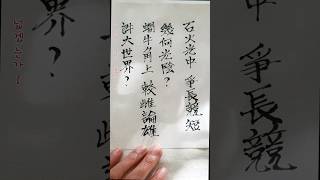 石火光中 爭長競短
幾何光陰?
蝸牛角上 較雌論雄
許大世界?
爭長競
넓겠는가!